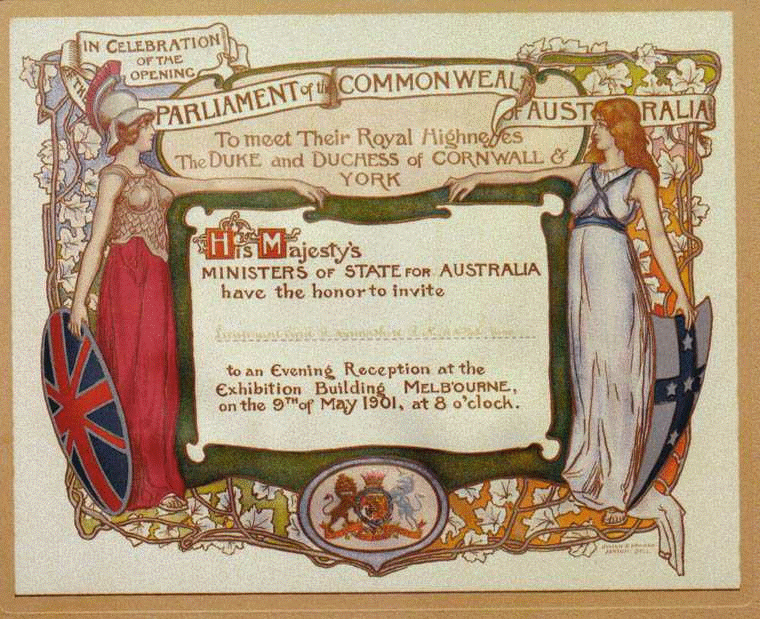 IN CELEBRATION
OF THE
OPENING
OF THE
PARLIAMENT of the COMMONWEAL
OF AUST RALIA
To meet Their Royal Highnesses
The DUKE and DUCHESS of CORNWALL &
YORK
His Majesty's
MINISTERS OF STATE FOR AUSTRALIA
have the honor to invite
Lieutenant
to an Evening Reception at the
Exhibition Building MELBOURNE,
on the 9TH of May 1901, at 8 o'clock.